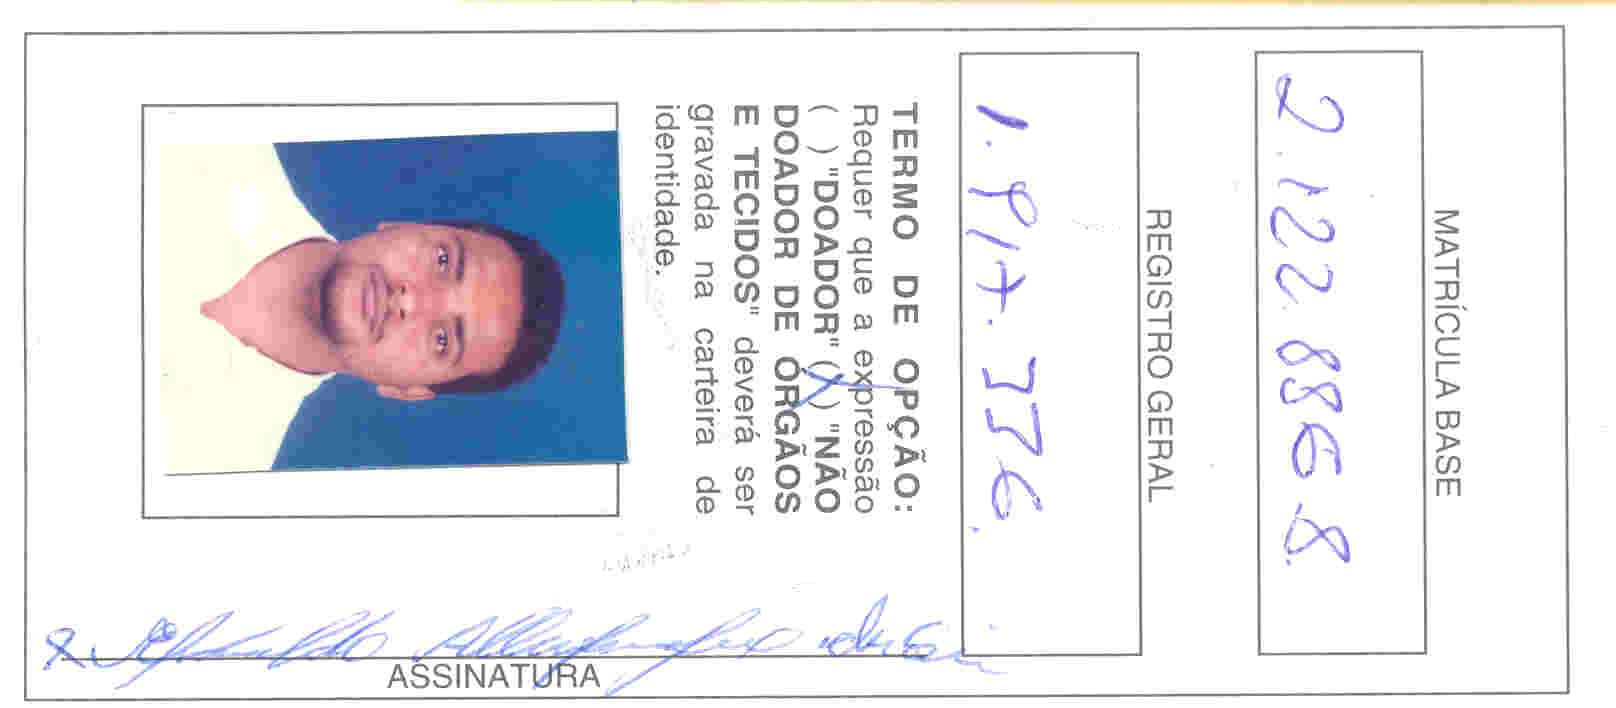 MATRÍCULA BASE
2.122.886.8
REGISTRO GERAL
TERMO DE OPÇÃO:
Requer que a expressão
( ) "DOADOR" (X) "NÃO
DOADOR DE ÓRGÃOS
E TECIDOS" deverá ser
gravada na carteira de
identidade.
ASSINATURA